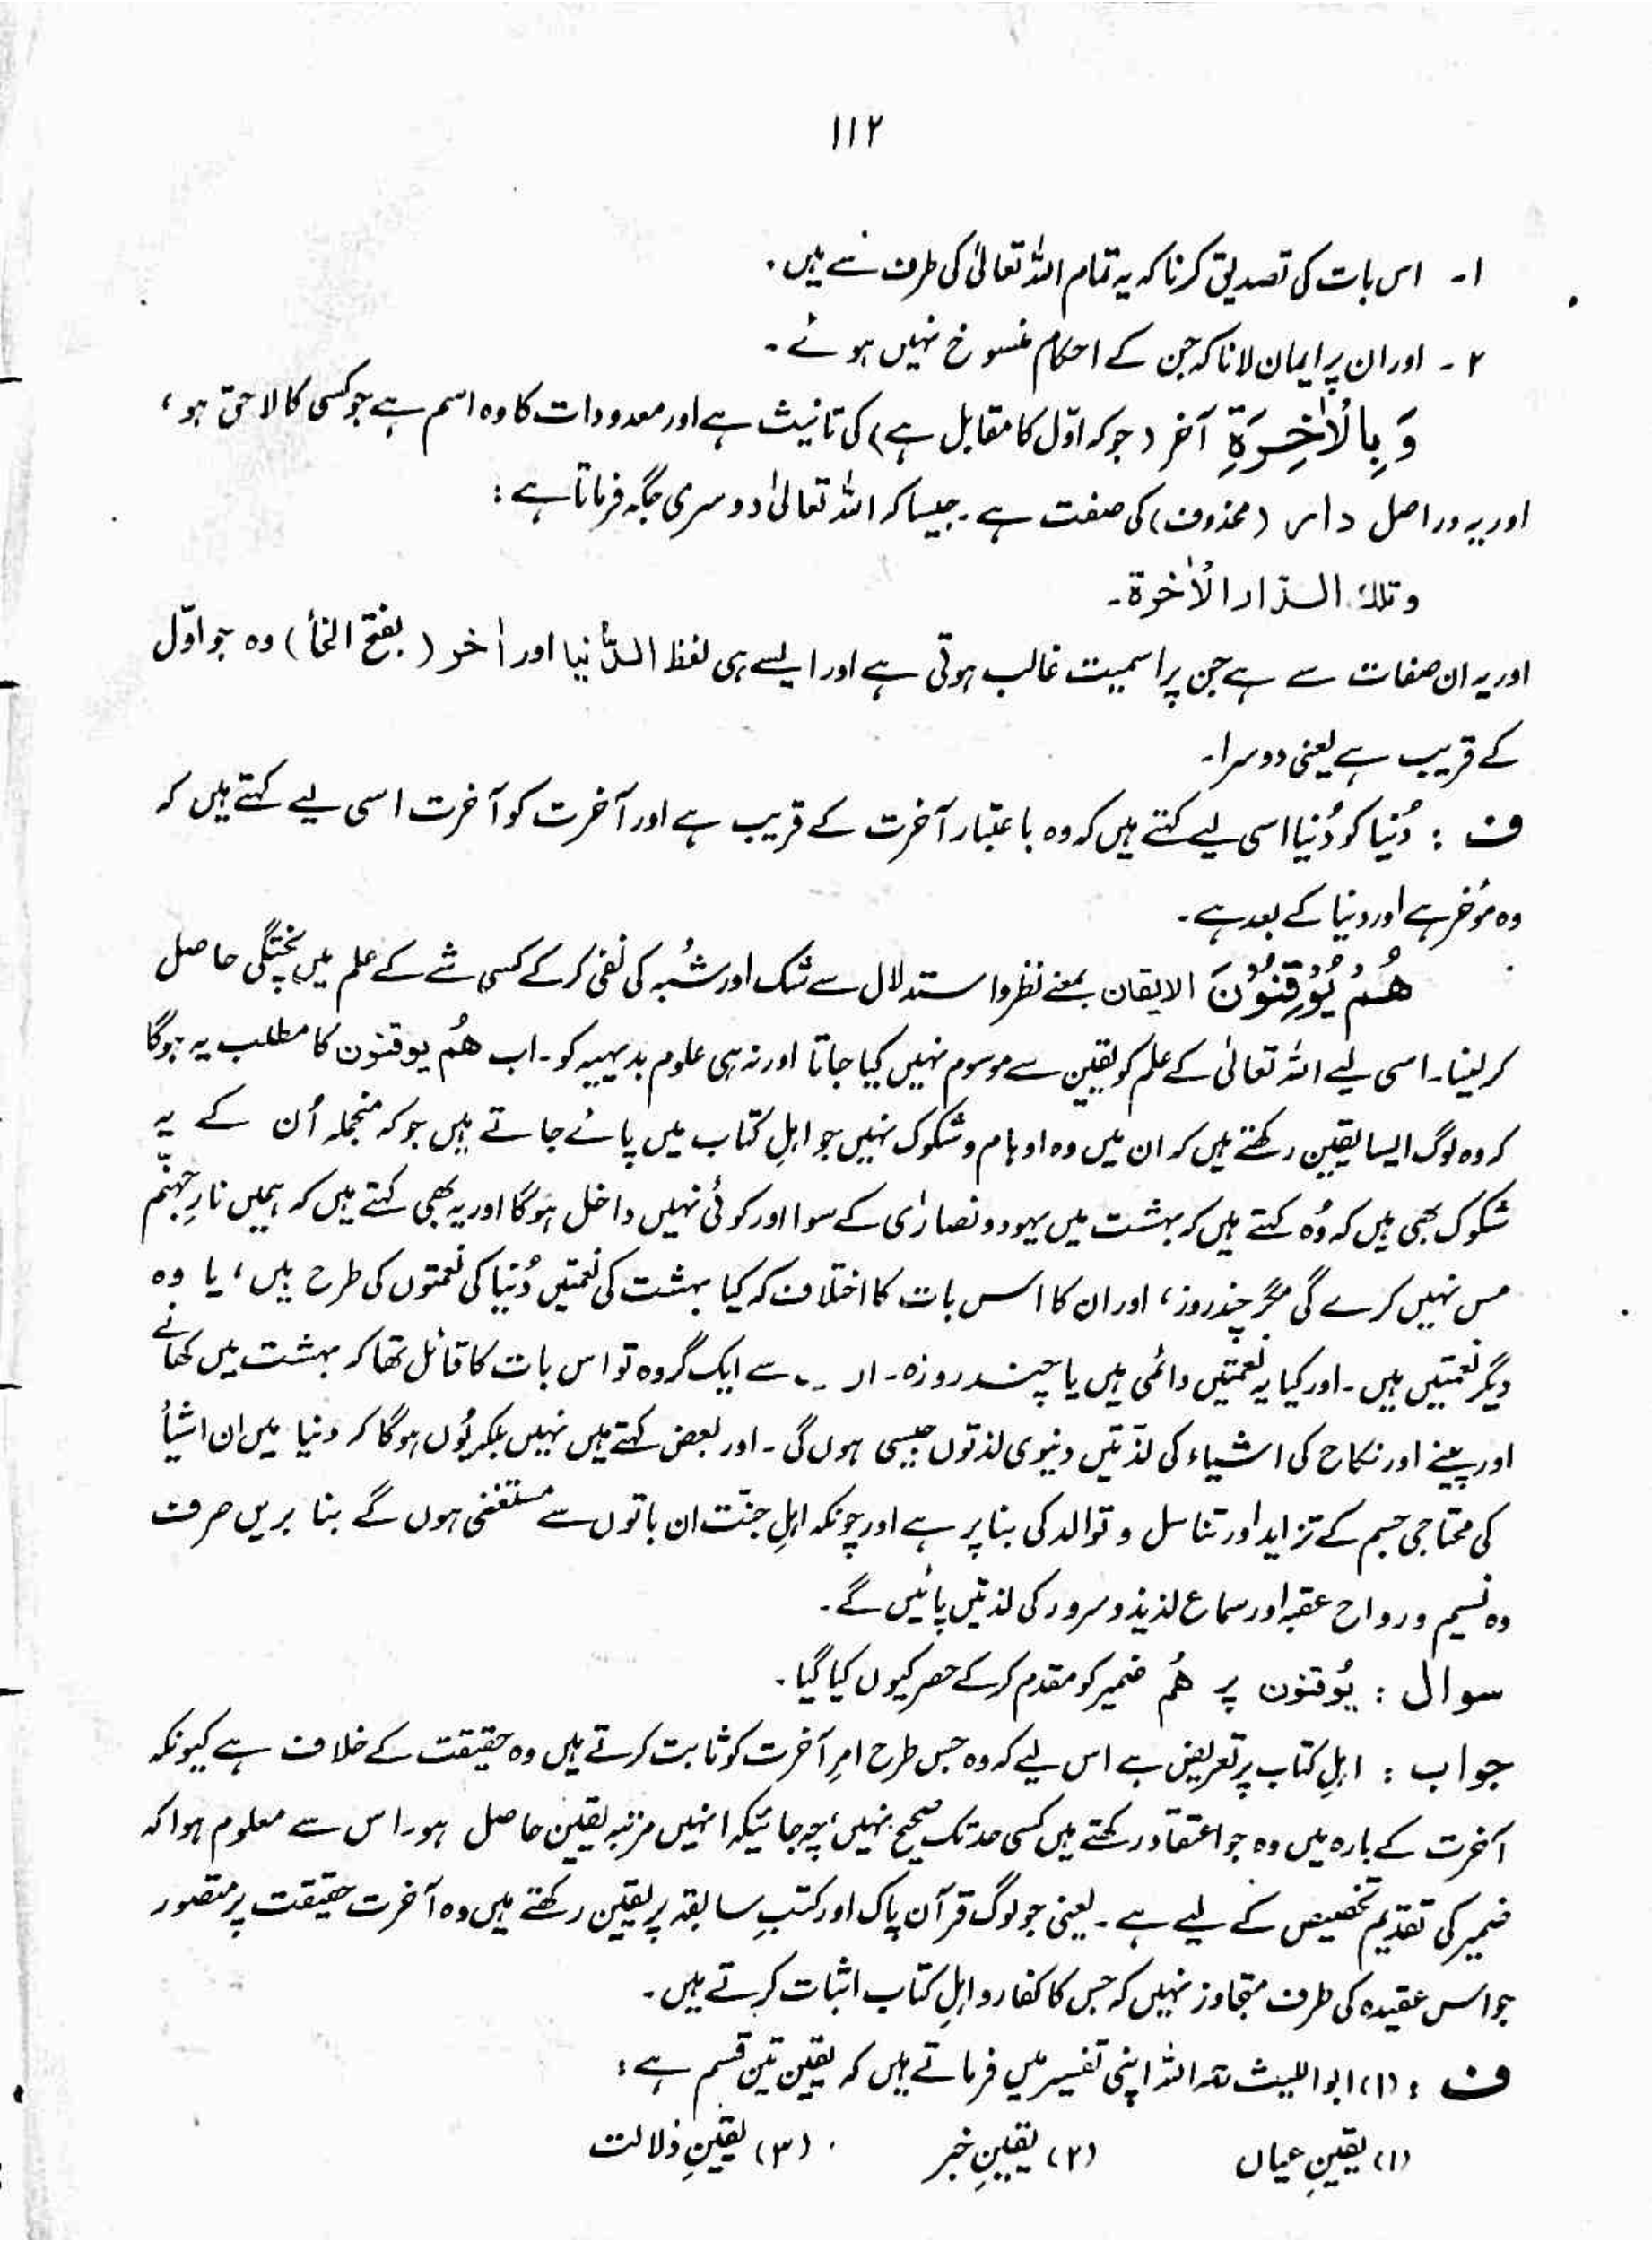 ۱۱۲
۱۔ اس بات کی تصدیق کرنا کہ یہ تمام اللہ تعالیٰ کی طرف سے ہیں۔
۲۔ اور ان پر ایمان لانا کہ جن کے احکام منسوخ نہیں ہوئے۔
وَ بِالْاٰخِرَةِ آخر (جو کہ اوّل کا مقابل ہے) کی تانیث ہے اور معدودات کا وہ اسم ہے جو کسی کا لاحق ہو،
اور یہ دراصل دار (محذوف) کی صفت ہے۔ جیسا کہ اللہ تعالیٰ دوسری جگہ فرماتا ہے:
وتلك الدّار الاٰخرة۔
اور یہ ان صفات سے ہے جن پر اسمیت غالب ہوتی ہے اور ایسے ہی لفظ الدُّنیا اور اٰخر (بفتح الخأ) وہ جو اوّل
کے قریب ہے یعنی دوسرا۔
ف : دُنیا کو دُنیا اسی لیے کہتے ہیں کہ وہ باعتبار آخرت کے قریب ہے اور آخرت کو آخرت اسی لیے کہتے ہیں کہ
وہ مؤخر ہے اور دنیا کے بعد ہے۔
هُمْ يُوْقِنُوْنَ الایقان بمعنے نظر و استدلال سے شک اور شُبہ کی نفی کر کے کسی شے کے علم میں پختگی حاصل
کر لینا۔ اسی لیے اللہ تعالیٰ کے علم کو یقین سے موسوم نہیں کیا جاتا اور نہ ہی علوم بدیہیہ کو۔ اب هُم یوقنون کا مطلب یہ ہوگا
کہ وہ لوگ ایسا یقین رکھتے ہیں کہ ان میں وہ اوہام و شکوک نہیں جو اہلِ کتاب میں پائے جاتے ہیں جو کہ منجملہ اُن کے یہ
شکوک بھی ہیں کہ وُہ کہتے ہیں کہ بہشت میں یہود و نصارٰی کے سوا اور کوئی نہیں داخل ہوگا اور یہ بھی کہتے ہیں کہ ہمیں نارِ جہنّم
مس نہیں کرے گی مگر چند روز، اور ان کا اس بات کا اختلاف کہ کیا بہشت کی نعمتیں دُنیا کی نعمتوں کی طرح ہیں، یا وہ
دیگر نعمتیں ہیں۔ اور کیا یہ نعمتیں دائمی ہیں یا چند روزہ۔ سے ایک گروہ تو اس بات کا قائل تھا کہ بہشت میں کھانے
اور پینے اور نکاح کی اشیاء کی لذّتیں دنیوی لذتوں جیسی ہوں گی۔ اور بعض کہتے ہیں نہیں بلکہ یُوں ہوگا کہ دنیا میں ان اشیأ
کی محتاجی جسم کے تزاید اور تناسل و توالد کی بنا پر ہے اور چونکہ اہلِ جنّت ان باتوں سے مستغنی ہوں گے بنا بریں صرف
وہ نسیم و رواح عقبہ اور سماع لذیذ و سرور کی لذتیں پائیں گے۔
سوال : یُوقنون پر هُم ضمیر کو مقدم کر کے حصر کیوں کیا گیا۔
جواب : اہلِ کتاب پر تعریض ہے اس لیے کہ وہ جس طرح امرِ آخرت کو ثابت کرتے ہیں وہ حقیقت کے خلاف ہے کیونکہ
آخرت کے بارہ میں وہ جو اعتقاد رکھتے ہیں کسی حد تک صحیح نہیں، چہ جائیکہ انہیں مرتبہ یقین حاصل ہو۔ اس سے معلوم ہوا کہ
ضمیر کی تقدیم تخصیص کے لیے ہے۔ یعنی جو لوگ قرآن پاک اور کتبِ سابقہ پر یقین رکھتے ہیں وہ آخرت حقیقت پر مقصور
جو اس عقیدہ کی طرف متجاوز نہیں کہ جس کا کفار و اہلِ کتاب اثبات کرتے ہیں۔
ف : (۱) ابواللیث اللہ اپنی تفسیر میں فرماتے ہیں کہ یقین تین قسم ہے:
(۱) یقینِ عیاں (۲) یقینِ خبر (۳) یقینِ دلالت